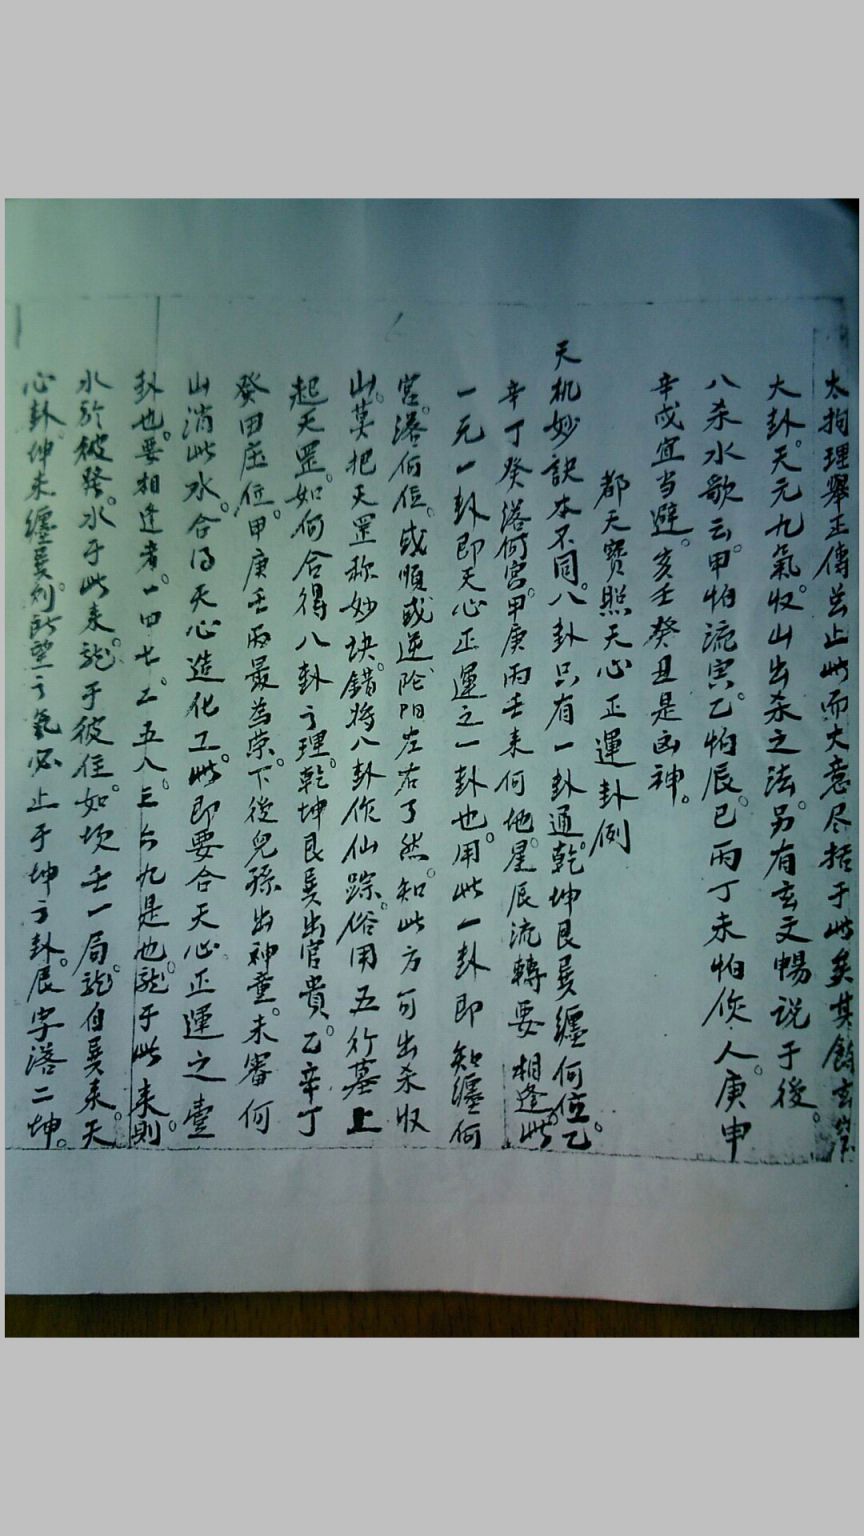 太拘理舉正傳玄止此而大意尽括于此矣其餘玄
大卦。天元九氣。收山出杀之法。另有玄文暢説于後。
八杀水歌云。甲怕流寅。乙怕辰。巳丙丁未怕人。庚申
辛戍宜当避。亥壬癸丑是凶神。
都天寶照天心正運卦例
天机妙訣本不同。八卦只有一卦通。乾坤艮巽纏何位。乙
辛丁癸落何宮。甲庚丙壬来何地。星辰流轉要相逢。此
一元一卦即天心正運之一卦也。用此一卦即知纏何
宮。落何位。或順或逆。陰阳左右了然。知此方可出杀収
山。莫把天罡称妙訣。錯将八卦作仙踪。俗用五行墓上
起天罡。如何合得八卦之理。乾坤艮巽出官貴。乙辛丁
癸田庄位。甲庚壬丙最為荣。下後兒孫出神童。未審何
山消此水。合得天心造化工。此即要合天心正運之壹
卦也。要相逢者。一四七。二五八。三六九是也。龍于此来。則
水於彼發。水于此来。龍于彼住。如坎壬一局。龍自巽来。天
心卦坤未纏巽。則所塟之氣必止于坤之卦。辰字落二坤。